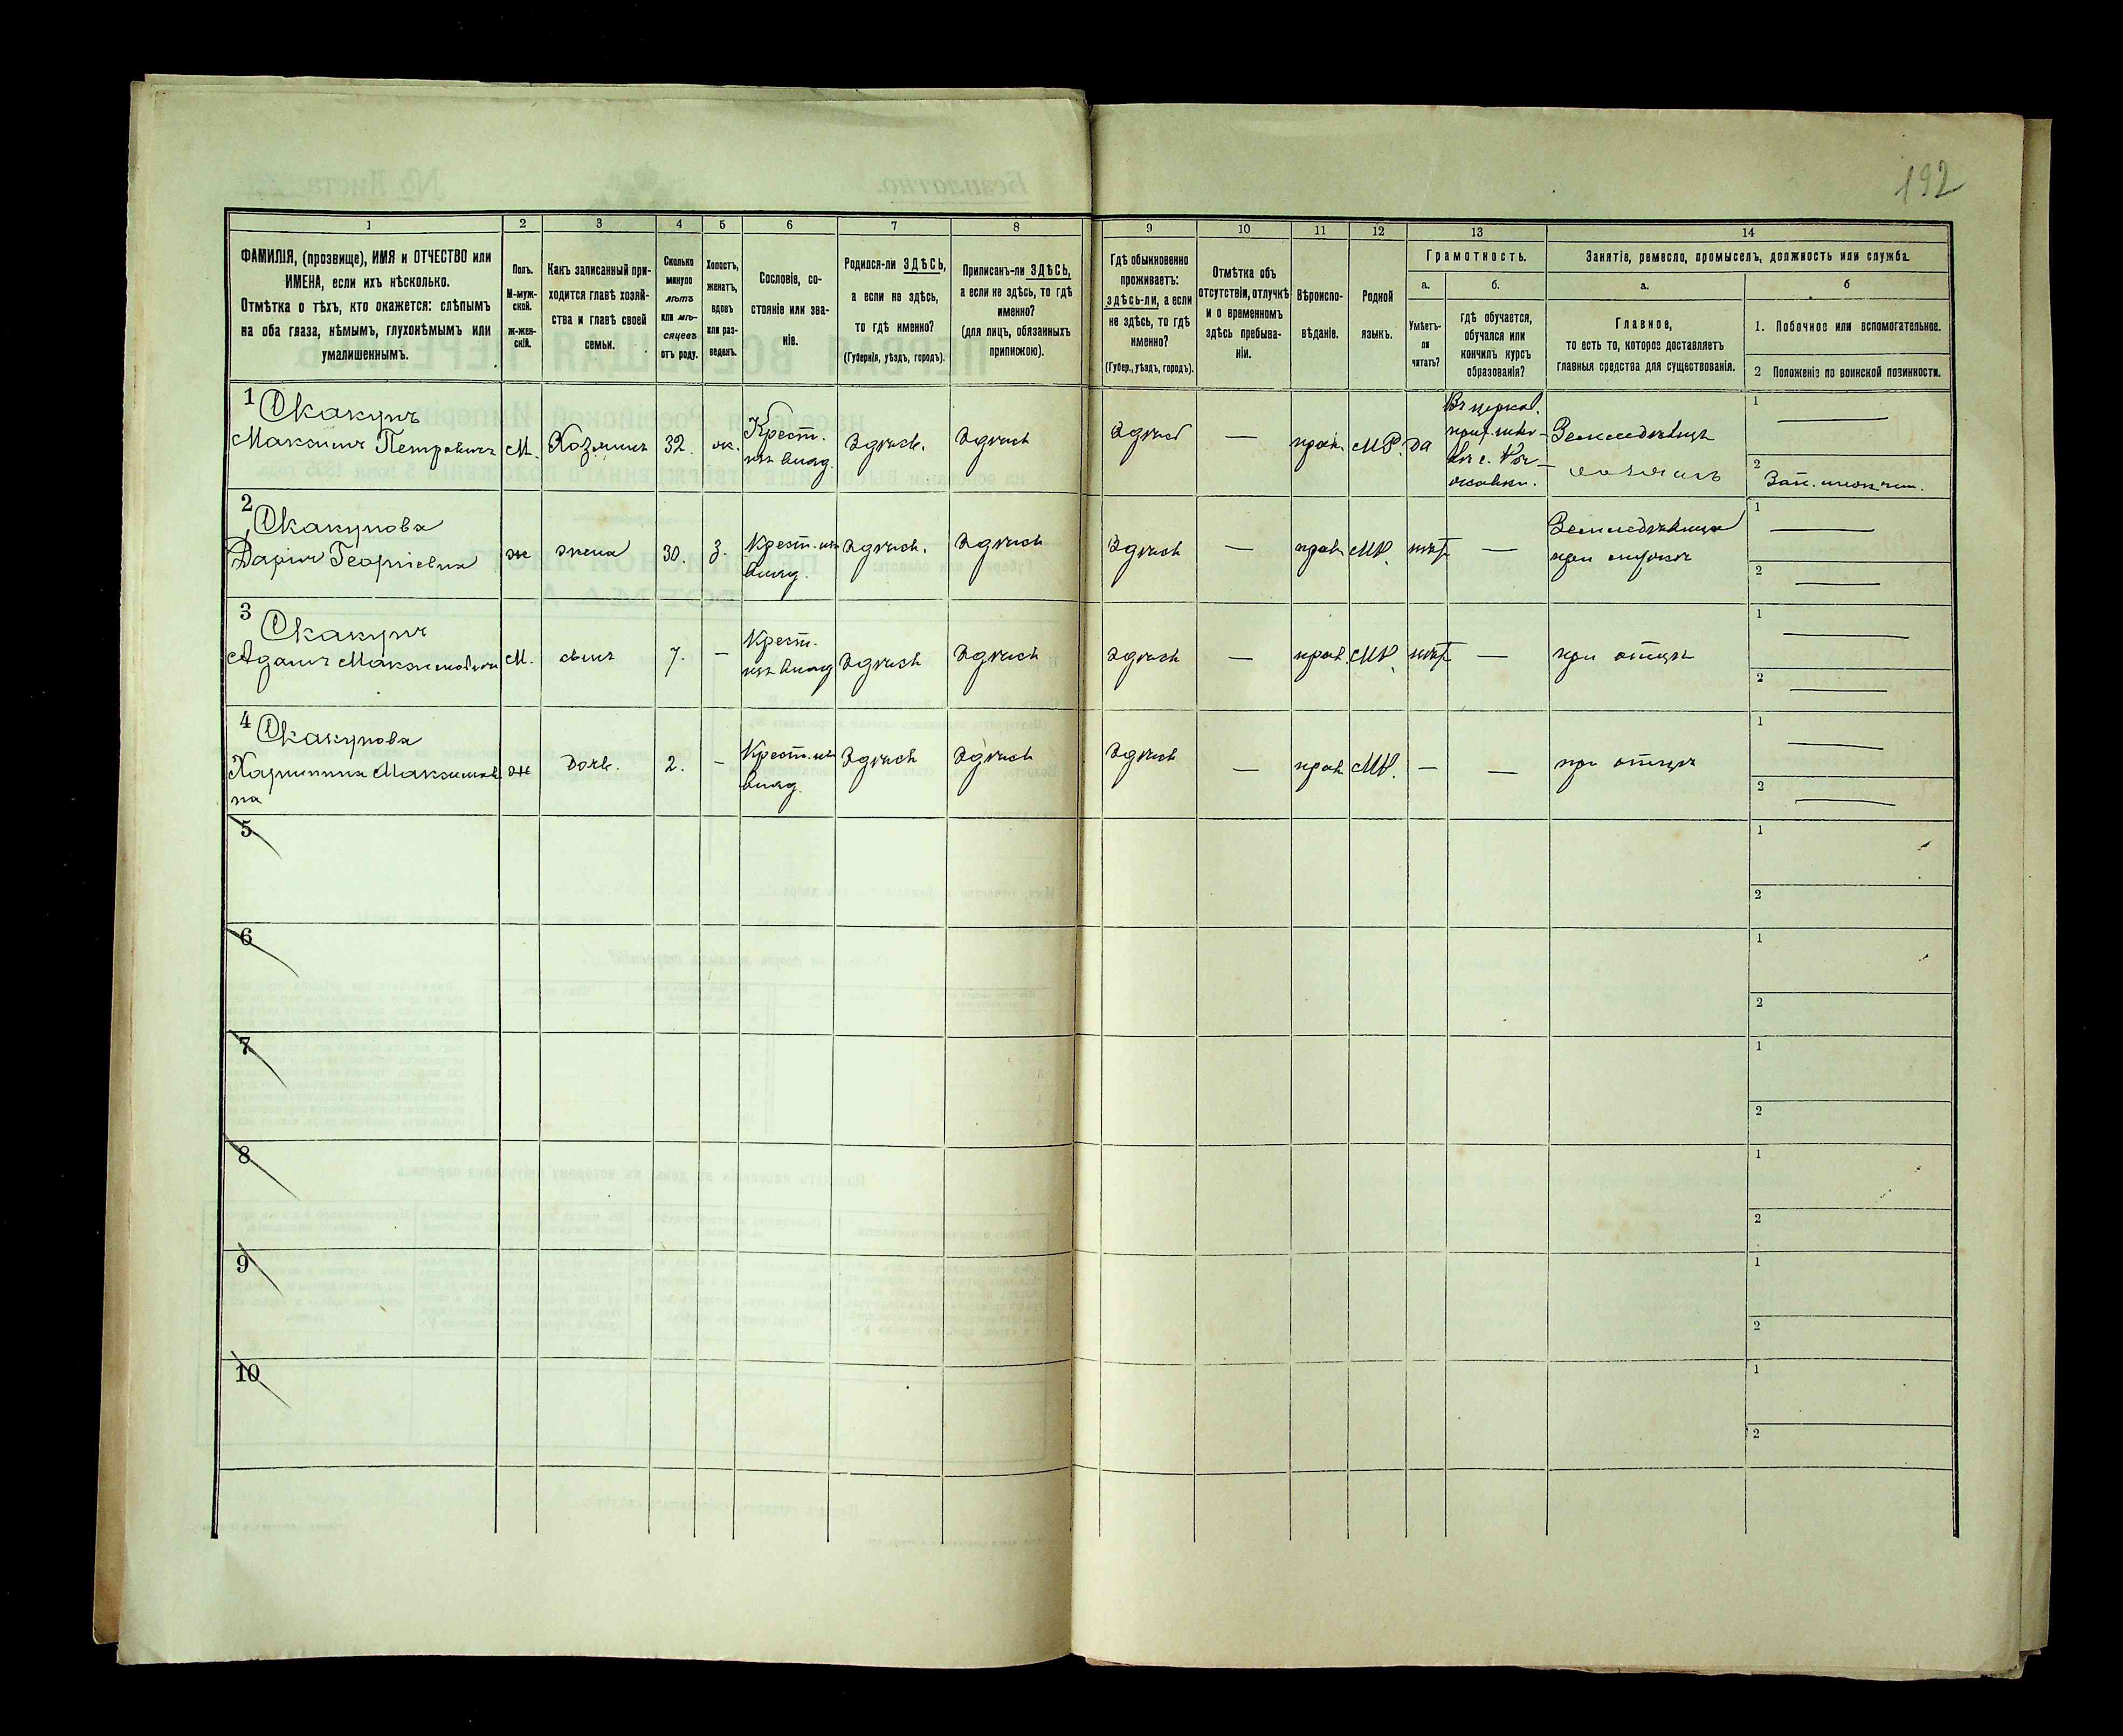 192
1 2 3 4 5 6 7 8 9 10 11 12 13 14
ФАМИЛІЯ, (прозвище), ИМЯ и ОТЧЕСТВО или
ИМЕНА, если ихъ нѣсколько.
Отмѣтка о тѣхъ, кто окажется: слѣпымъ
на оба глаза, нѣмымъ, глухонѣмымъ или
умалишеннымъ.
Полъ.
М-муж-
ской.
ж-жен-
скій.
Какъ записанный при-
ходится главѣ хозяй-
ства и главѣ своей
семьи.
Сколько
минуло
лѣтъ
или мѣ-
сяцевъ
отъ роду.
Холостъ,
женатъ,
вдовъ
или раз-
веденъ.
Сословіе, со-
стояніе или зва-
ніе.
Родился-ли ЗДѢСЬ,
а если не здѣсь,
то гдѣ именно?
(Губернія, уѣздъ, городъ).
Приписанъ-ли ЗДѢСЬ,
а если не здѣсь, то гдѣ
именно?
(для лицъ, обязанныхъ
припискою).
Гдѣ обыкновенно
проживаетъ:
здѣсь-ли, а если
не здѣсь, то гдѣ
именно?
(Губер., уѣздъ, городъ).
Отмѣтка объ
отсутствіи, отлучкѣ
и о временномъ
здѣсь пребыва-
ніи.
Вѣроиспо-
вѣданіе.
Родной
языкъ.
Грамотность.
а.
Умѣетъ-
ли
читать?
б.
гдѣ обучается,
обучался или
кончилъ курсъ
образованія?
Занятіе, ремесло, промыселъ, должность или служба.
а.
Главное,
то есть то, которое доставляетъ
главныя средства для существованія.
б
1. Побочное или вспомогательное.
2 Положеніе по воинской повинности.
1 Скакунъ
Максимъ Петровичъ
М. Хозяинъ 32. ж.
Крест.
изъ влад.
Здѣсь. Здѣсь Здѣсь — прав. МР. да
Въ церков.
прих. шко-
лѣ с.
Земледѣлецъ
хозяинъ
1 —
2
2 Скакунова
Дарія Георгіевна
ж жена 30. з.
Крест. изъ
влад.
Здѣсь. Здѣсь Здѣсь — прав. МР. нѣт —
Земледѣлица
при мужѣ
1 —
2 —
3 Скакунъ
Адамъ Максимовичъ
М. сынъ 7. —
Крест.
изъ влад
Здѣсь Здѣсь Здѣсь — прав. МР. нѣт —
при отцѣ
1 —
2 —
4 Скакунова
Харитина Максимов
на
ж дочь. 2. —
Крест. изъ
влад.
Здѣсь Здѣсь Здѣсь — прав. МР. — —
при отцѣ
1 —
2 —
5 1
2
6 1
2
7 1
2
8 1
2
9 1
2
10 1
2